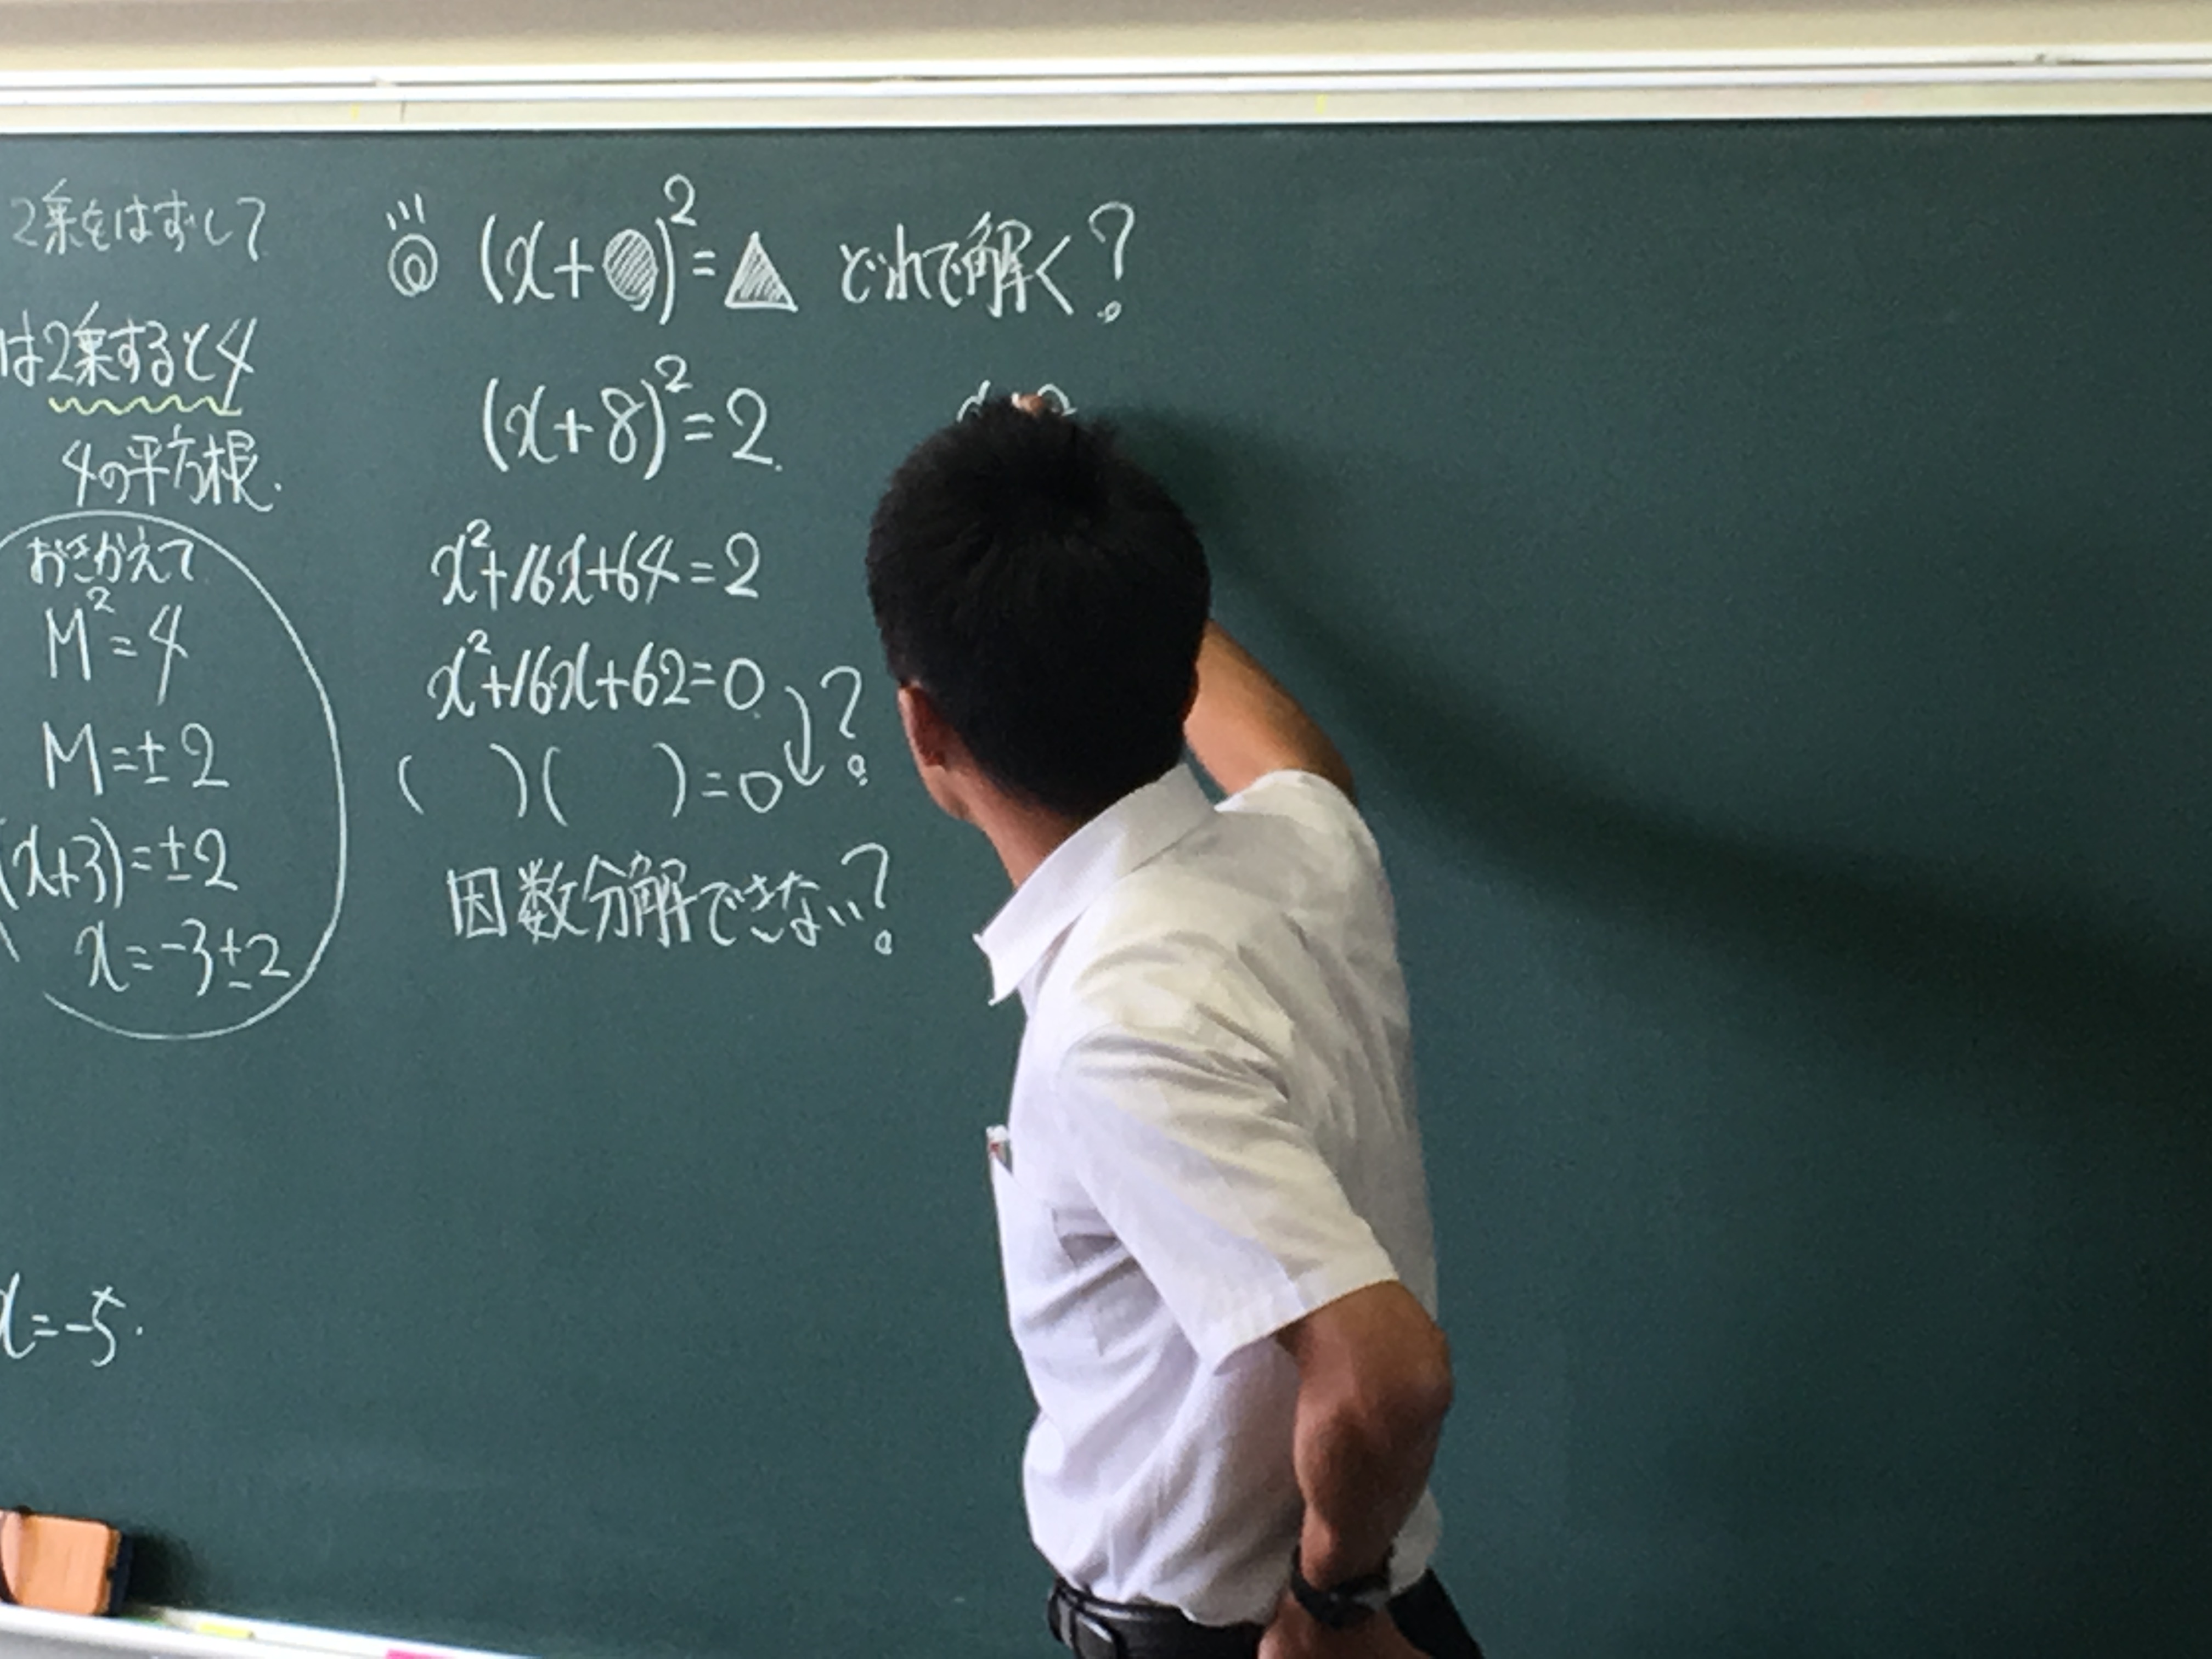 2乗をはずして
は2乗すると4
4の平方根.
おきかえて
M²=4
M=±2
(x+3)=±2
x=-3±2
x=-5.
◎ (x+●)²=▲ どれで解く?
(x+8)²=2.
x²+16x+64=2
x²+16x+62=0.
( )( )=0 ?
因数分解できない?